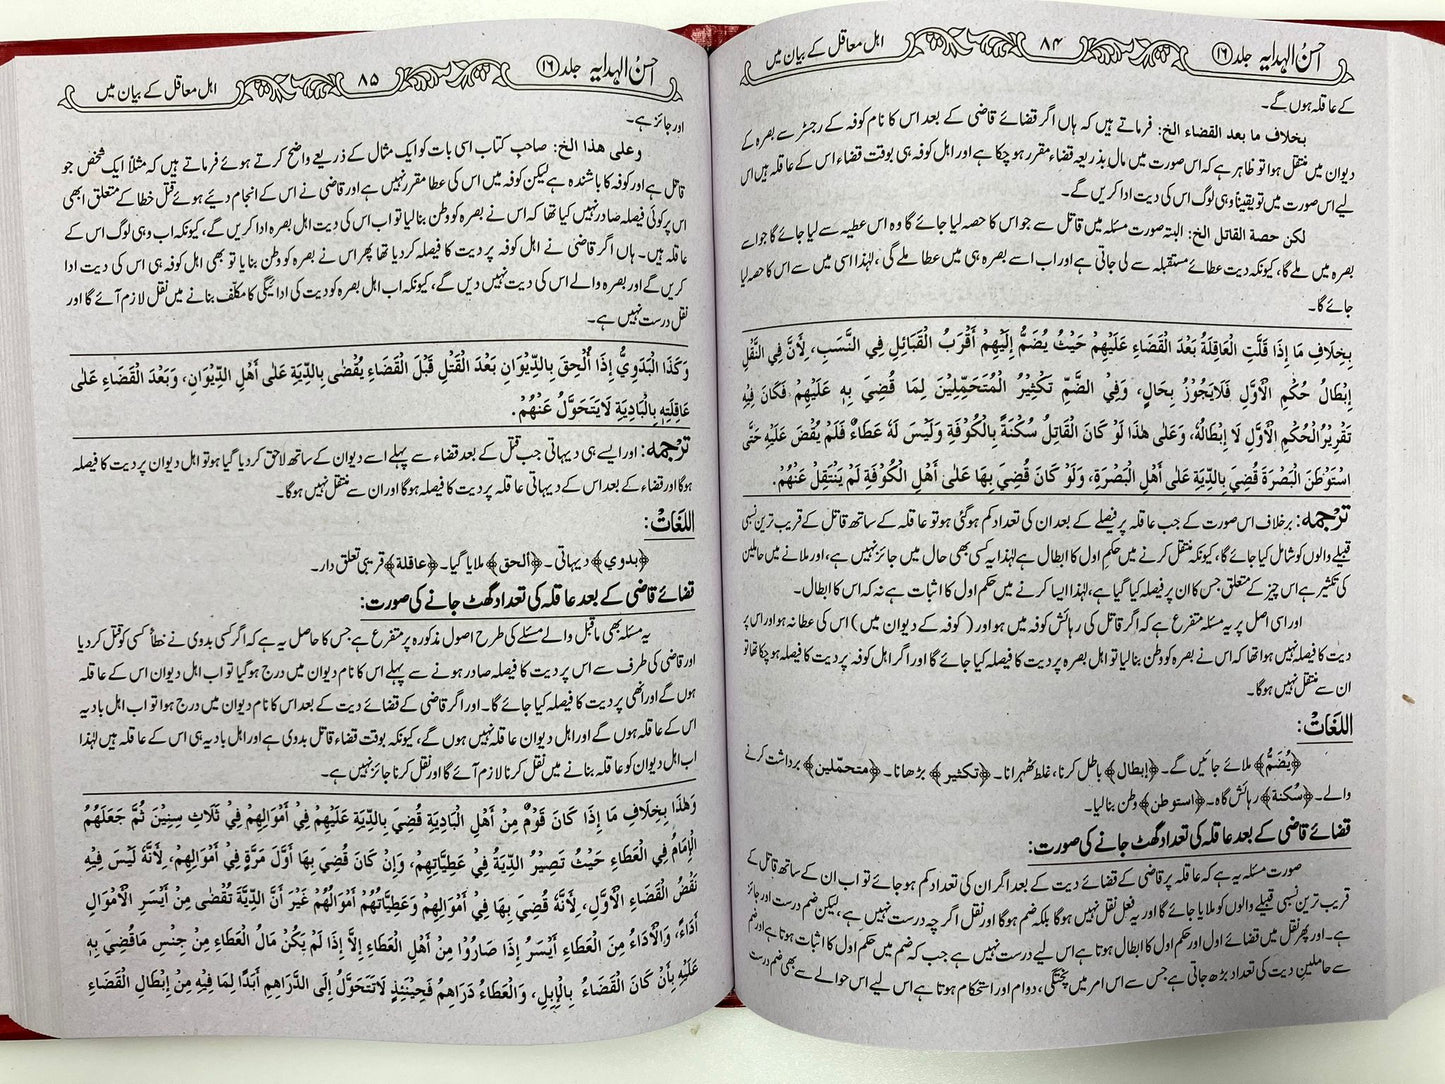 احسن الہدایہ جلد ۱۶ ۸۴ اہل معاقل کے بیان میں
کے عاقلہ ہوں گے۔
بخلاف ما بعد القضاء الخ: فرماتے ہیں کہ ہاں اگر قضائے قاضی کے بعد اس کا نام کوفہ کے رجسٹر سے بصرہ کے
دیوان میں منتقل ہوا تو ظاہر ہے کہ اس صورت میں مال بذریعہ قضاء مقرر ہو چکا ہے اور اہل کوفہ ہی بوقت قضاء اس کے عاقلہ ہیں اس
لیے اس صورت میں تو یقیناً وہی لوگ اس کی دیت ادا کریں گے۔
لكن حصة القاتل الخ: البتہ صورت مسئلہ میں قاتل سے جو اس کا حصہ لیا جائے گا وہ اس عطیہ سے لیا جائے گا جو اسے
بصرہ میں ملے گا، کیونکہ دیت عطائے مستقبلہ سے لی جاتی ہے اور اب اسے بصرہ ہی میں عطا ملے گی، لہٰذا اسی میں سے اس کا حصہ لیا
جائے گا۔
بِخِلَافِ مَا إِذَا قَلَّتِ الْعَاقِلَةُ بَعْدَ الْقَضَاءِ عَلَيْهِمْ حَيْثُ يُضَمُّ إِلَيْهِمْ أَقْرَبُ الْقَبَائِلِ فِي النَّسَبِ، لِأَنَّ فِي النَّقْلِ
إِبْطَالُ حُكْمِ الْأَوَّلِ فَلَايَجُوْزُ بِحَالٍ، وَفِي الضَّمِّ تَكْثِيْرُ الْمُتَحَمِّلِيْنَ لِمَا قُضِيَ بِهٖ عَلَيْهِمْ فَكَانَ فِيْهِ
تَقْرِيْرُالْحُكْمِ الْأَوَّلِ لَا إِبْطَالُهُ، وَعَلٰى هٰذَا لَوْ كَانَ الْقَاتِلُ سُكْنَةً بِالْكُوْفَةِ وَلَيْسَ لَهُ عَطَاءٌ فَلَمْ يُقْضَ عَلَيْهِ حَتّٰى
اسْتَوْطَنَ الْبَصْرَةَ قُضِيَ بِالدِّيَةِ عَلٰى أَهْلِ الْبَصْرَةِ، وَلَوْ كَانَ قُضِيَ بِهَا عَلٰى أَهْلِ الْكُوْفَةِ لَمْ يَنْتَقِلْ عَنْهُمْ.
ترجمہ: برخلاف اس صورت کے جب عاقلہ پر فیصلے کے بعد ان کی تعداد کم ہوگئی ہو تو عاقلہ کے ساتھ قاتل کے قریب ترین نسبی
قبیلے والوں کو شامل کیا جائے گا، کیونکہ منتقل کرنے میں حکم اول کا ابطال ہے لہٰذا یہ کسی بھی حال میں جائز نہیں ہے، اور ملانے میں حاملین
کی تکثیر ہے اس چیز کے متعلق جس کا ان پر فیصلہ کیا گیا ہے، لہٰذا ایسا کرنے میں حکم اول کا اثبات ہے نہ کہ اس کا ابطال۔
اور اسی اصل پر یہ مسئلہ متفرع ہے کہ اگر قاتل کی رہائش کوفہ میں ہو اور (کوفہ کے دیوان میں) اس کی عطا نہ ہو اور اس پر
دیت کا فیصلہ نہیں ہوا تھا کہ اس نے بصرہ کو وطن بنالیا تو اہل بصرہ پر دیت کا فیصلہ کیا جائے گا اور اگر اہل کوفہ پر دیت کا فیصلہ ہو چکا تھا تو
ان سے منتقل نہیں ہوگا۔
اللغات:
﴿يُضَمُّ﴾ ملائے جائیں گے۔ ﴿إبطال﴾ باطل کرنا، غلط ٹھہرانا۔ ﴿تكثير﴾ بڑھانا۔ ﴿متحمّلين﴾ برداشت کرنے
والے۔ ﴿سُكنة﴾ رہائش گاہ۔ ﴿استوطن﴾ وطن بنالیا۔
قضائے قاضی کے بعد عاقلہ کی تعداد گھٹ جانے کی صورت:
صورت مسئلہ یہ ہے کہ عاقلہ پر قاضی کے قضائے دیت کے بعد اگر ان کی تعداد کم ہو جائے تو اب ان کے ساتھ قاتل کے
قریب ترین نسبی قبیلے والوں کو ملایا جائے گا اور یہ فعل نقل نہیں ہوگا بلکہ ضم ہوگا اور نقل اگر چہ درست نہیں ہے، لیکن ضم درست اور جائز
ہے۔ اور پھر نقل میں قضائے اول اور حکم اول کا ابطال ہوتا ہے اس لیے درست نہیں ہے جب کہ ضم میں حکم اول کا اثبات ہوتا ہے اور ضم
سے حاملین دیت کی تعداد بڑھ جاتی ہے جس سے اس امر میں پختگی، دوام اور استحکام ہوتا ہے اس لیے اس حوالے سے بھی ضم درست
احسن الہدایہ جلد ۱۶ ۸۵ اہل معاقل کے بیان میں
اور جائز ہے۔
وعلى هذا الخ: صاحب کتاب اسی بات کو ایک مثال کے ذریعے واضح کرتے ہوئے فرماتے ہیں کہ مثلاً ایک شخص جو
قاتل ہے اور کوفہ کا باشندہ ہے لیکن کوفہ میں اس کی عطا مقرر نہیں ہے اور قاضی نے اس کے انجام دیئے ہوئے قتل خطا کے متعلق ابھی
اس پر کوئی فیصلہ صادر نہیں کیا تھا کہ اس نے بصرہ کو وطن بنالیا تو اب اس کی دیت اہل بصرہ ادا کریں گے، کیونکہ اب وہی لوگ اس کے
عاقلہ ہیں۔ ہاں اگر قاضی نے اہل کوفہ پر دیت کا فیصلہ کردیا تھا پھر اس نے بصرہ کو وطن بنایا تو بھی اہل کوفہ ہی اس کی دیت ادا
کریں گے اور بصرہ والے اس کی دیت نہیں دیں گے، کیونکہ اب اہل بصرہ کو دیت کی ادائیگی کا مکلّف بنانے میں نقل لازم آئے گا اور
نقل درست نہیں ہے۔
وَكَذَا الْبَدَوِيُّ إِذَا أُلْحِقَ بِالدِّيْوَانِ بَعْدَ الْقَتْلِ قَبْلَ الْقَضَاءِ يُقْضٰى بِالدِّيَةِ عَلٰى أَهْلِ الدِّيْوَانِ، وَبَعْدَ الْقَضَاءِ عَلٰى
عَاقِلَتِهٖ بِالْبَادِيَةِ لَايَتَحَوَّلُ عَنْهُمْ.
ترجمہ: اور ایسے ہی دیہاتی جب قتل کے بعد قضاء سے پہلے اسے دیوان کے ساتھ لاحق کردیا گیا ہو تو اہل دیوان پر دیت کا فیصلہ
ہوگا اور قضاء کے بعد اس کے دیہاتی عاقلہ پر دیت کا فیصلہ ہوگا اور ان سے منتقل نہیں ہوگا۔
اللغات:
﴿بدوي﴾ دیہاتی۔ ﴿ألحق﴾ ملایا گیا۔ ﴿عاقلة﴾ قریبی تعلق دار۔
قضائے قاضی کے بعد عاقلہ کی تعداد گھٹ جانے کی صورت:
یہ مسئلہ بھی ماقبل والے مسئلے کی طرح اصول مذکورہ پر متفرع ہے جس کا حاصل یہ ہے کہ اگر کسی بدوی نے خطأً کسی کو قتل کردیا
اور قاضی کی طرف سے اس پر دیت کا فیصلہ صادر ہونے سے پہلے اس کا نام دیوان میں درج ہوگیا تو اب اہل دیوان اس کے عاقلہ
ہوں گے اور انھی پر دیت کا فیصلہ کیا جائے گا۔ اور اگر قاضی کے قضائے دیت کے بعد اس کا نام دیوان میں درج ہوا تو اب اہل بادیہ
اس کے عاقلہ ہوں گے اور اہل دیوان عاقلہ نہیں ہوں گے، کیونکہ بوقت قضاء قاتل بدوی ہے اور اہل بادیہ ہی اس کے عاقلہ ہیں لہٰذا
اب اہل دیوان کو عاقلہ بنانے میں نقل کرنا لازم آئے گا اور نقل کرنا جائز نہیں ہے۔
وَهٰذَا بِخِلَافِ مَا إِذَا كَانَ قَوْمٌ مِنْ أَهْلِ الْبَادِيَةِ قُضِيَ بِالدِّيَةِ عَلَيْهِمْ فِيْ أَمْوَالِهِمْ فِيْ ثَلَاثِ سِنِيْنَ ثُمَّ جَعَلَهُمُ
الْإِمَامُ فِي الْعَطَاءِ حَيْثُ تَصِيْرُ الدِّيَةُ فِيْ عَطِيَّاتِهِمْ، وَإِنْ كَانَ قُضِيَ بِهَا أَوَّلَ مَرَّةٍ فِيْ أَمْوَالِهِمْ، لِأَنَّهُ لَيْسَ فِيْهِ
نَقْضُ الْقَضَاءِ الْأَوَّلِ، لِأَنَّهُ قُضِيَ بِهَا فِيْ أَمْوَالِهِمْ وَعَطِيَّاتُهُمْ أَمْوَالُهُمْ غَيْرَ أَنَّ الدِّيَّةَ تُقْضٰى مِنْ أَيْسَرِ الْأَمْوَالِ
أَدَاءً، وَالْأَدَاءُ مِنَ الْعَطَاءِ أَيْسَرُ إِذَا صَارُوْا مِنْ أَهْلِ الْعَطَاءِ إِلَّا إِذَا لَمْ يَكُنْ مَالُ الْعَطَاءِ مِنْ جِنْسِ مَاقُضِيَ بِهٖ
عَلَيْهِ بِأَنْ كَانَ الْقَضَاءُ بِالْإِبِلِ، وَالْعَطَاءُ دَرَاهِمُ فَحِيْنَئِذٍ لَاتَتَحَوَّلُ إِلَى الدَّرَاهِمِ أَبَدًا لِمَا فِيْهِ مِنْ إِبْطَالِ الْقَضَاءِ